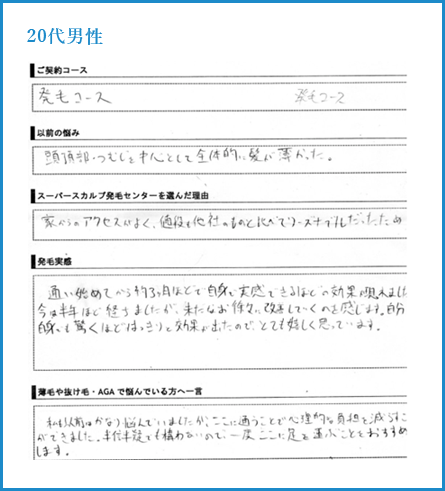 20代男性
ご契約コース
発毛コース 発毛コース
以前の悩み
頭頂部・つむじを中心として全体的に髪が薄かった。
スーパースカルプ発毛センターを選んだ理由
家からのアクセスがよく、値段も他社のものと比べてリーズナブルだったため
発毛実感
通い始めてから約3ヶ月ほどで自身で実感できるほどの効果が現れました
今は半年ほど経ちましたが、未だなお徐々に改善していくのを感じます。自分
自身でも驚くほどはっきりと効果が出たので、とても嬉しく思っています。
薄毛や抜け毛・AGAで悩んでいる方へ一言
私も以前はかなり悩んでいましたが、ここに通うことで心理的な負担を減らすこと
ができました。半信半疑でも構わないので、一度ここに足を運ぶことをおすすめ
します。